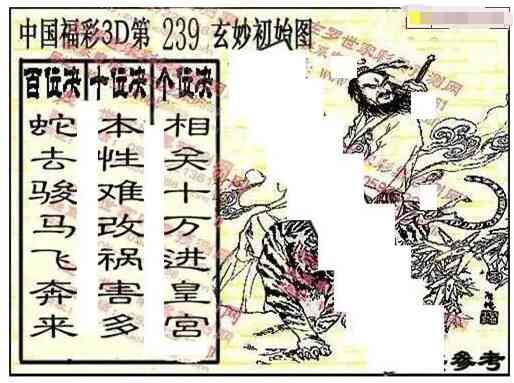 中国福彩3D第 239 玄妙初始图
百位决 十位决 个位决
蛇去骏马飞奔来
本性难改祸害多
相关十万进皇宫
参考